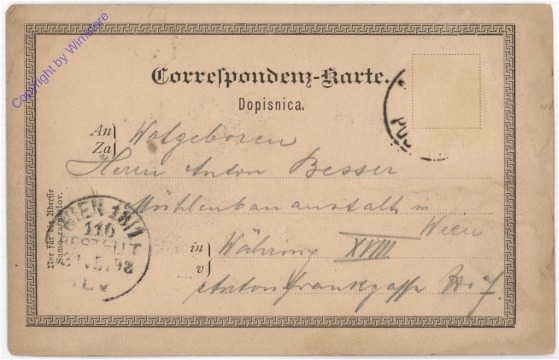 Copyright by Winstore
Correspondenz-Karte.
Dopisnica.
An
Za
Wolgeboren
Herrn Anton Besser
Mühlenbauanstalt in
Wien
in
v
Währing XVIII
Antonfrankgasse No 7.
Nur für die Adresse
Samo za naslov.
WIEN 18/1
110
BESTELLT
98